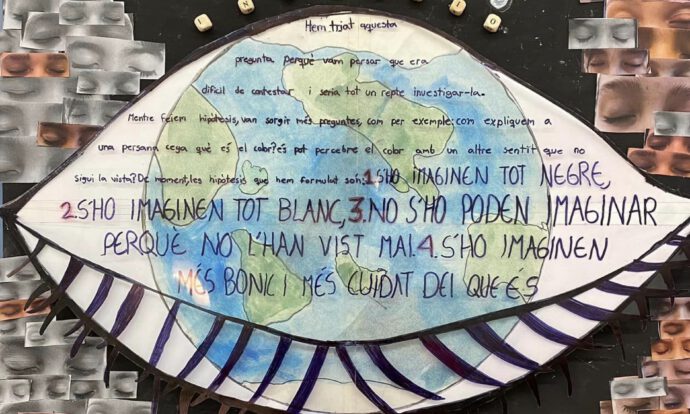 Hem triat aquesta
pregunta perquè vam pensar que era
difícil de contestar i seria tot un repte investigar-la.
Mentre feiem hipótesis, van sorgir més preguntes, com per exemple: com expliquem a
una persona cega què és el color? es pot percebre el color amb un altre sentit que no
sigui la vista? De moment, les hipótesis que hem formulat són: 1. S'HO IMAGINEN TOT NEGRE,
2. S'HO IMAGINEN TOT BLANC, 3. NO S'HO PODEN IMAGINAR
PERQUÈ NO L'HAN VIST MAI. 4. S'HO IMAGINEN
MÉS BONIC I MÉS CUIDAT DEL QUE ÉS